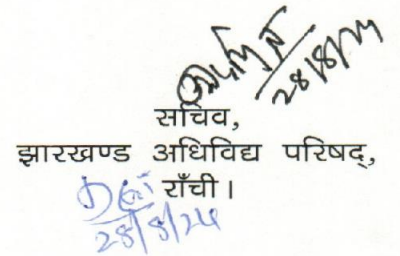 28/8/24
सचिव,
झारखण्ड अधिविद्य परिषद्,
राँची ।
28/8/24